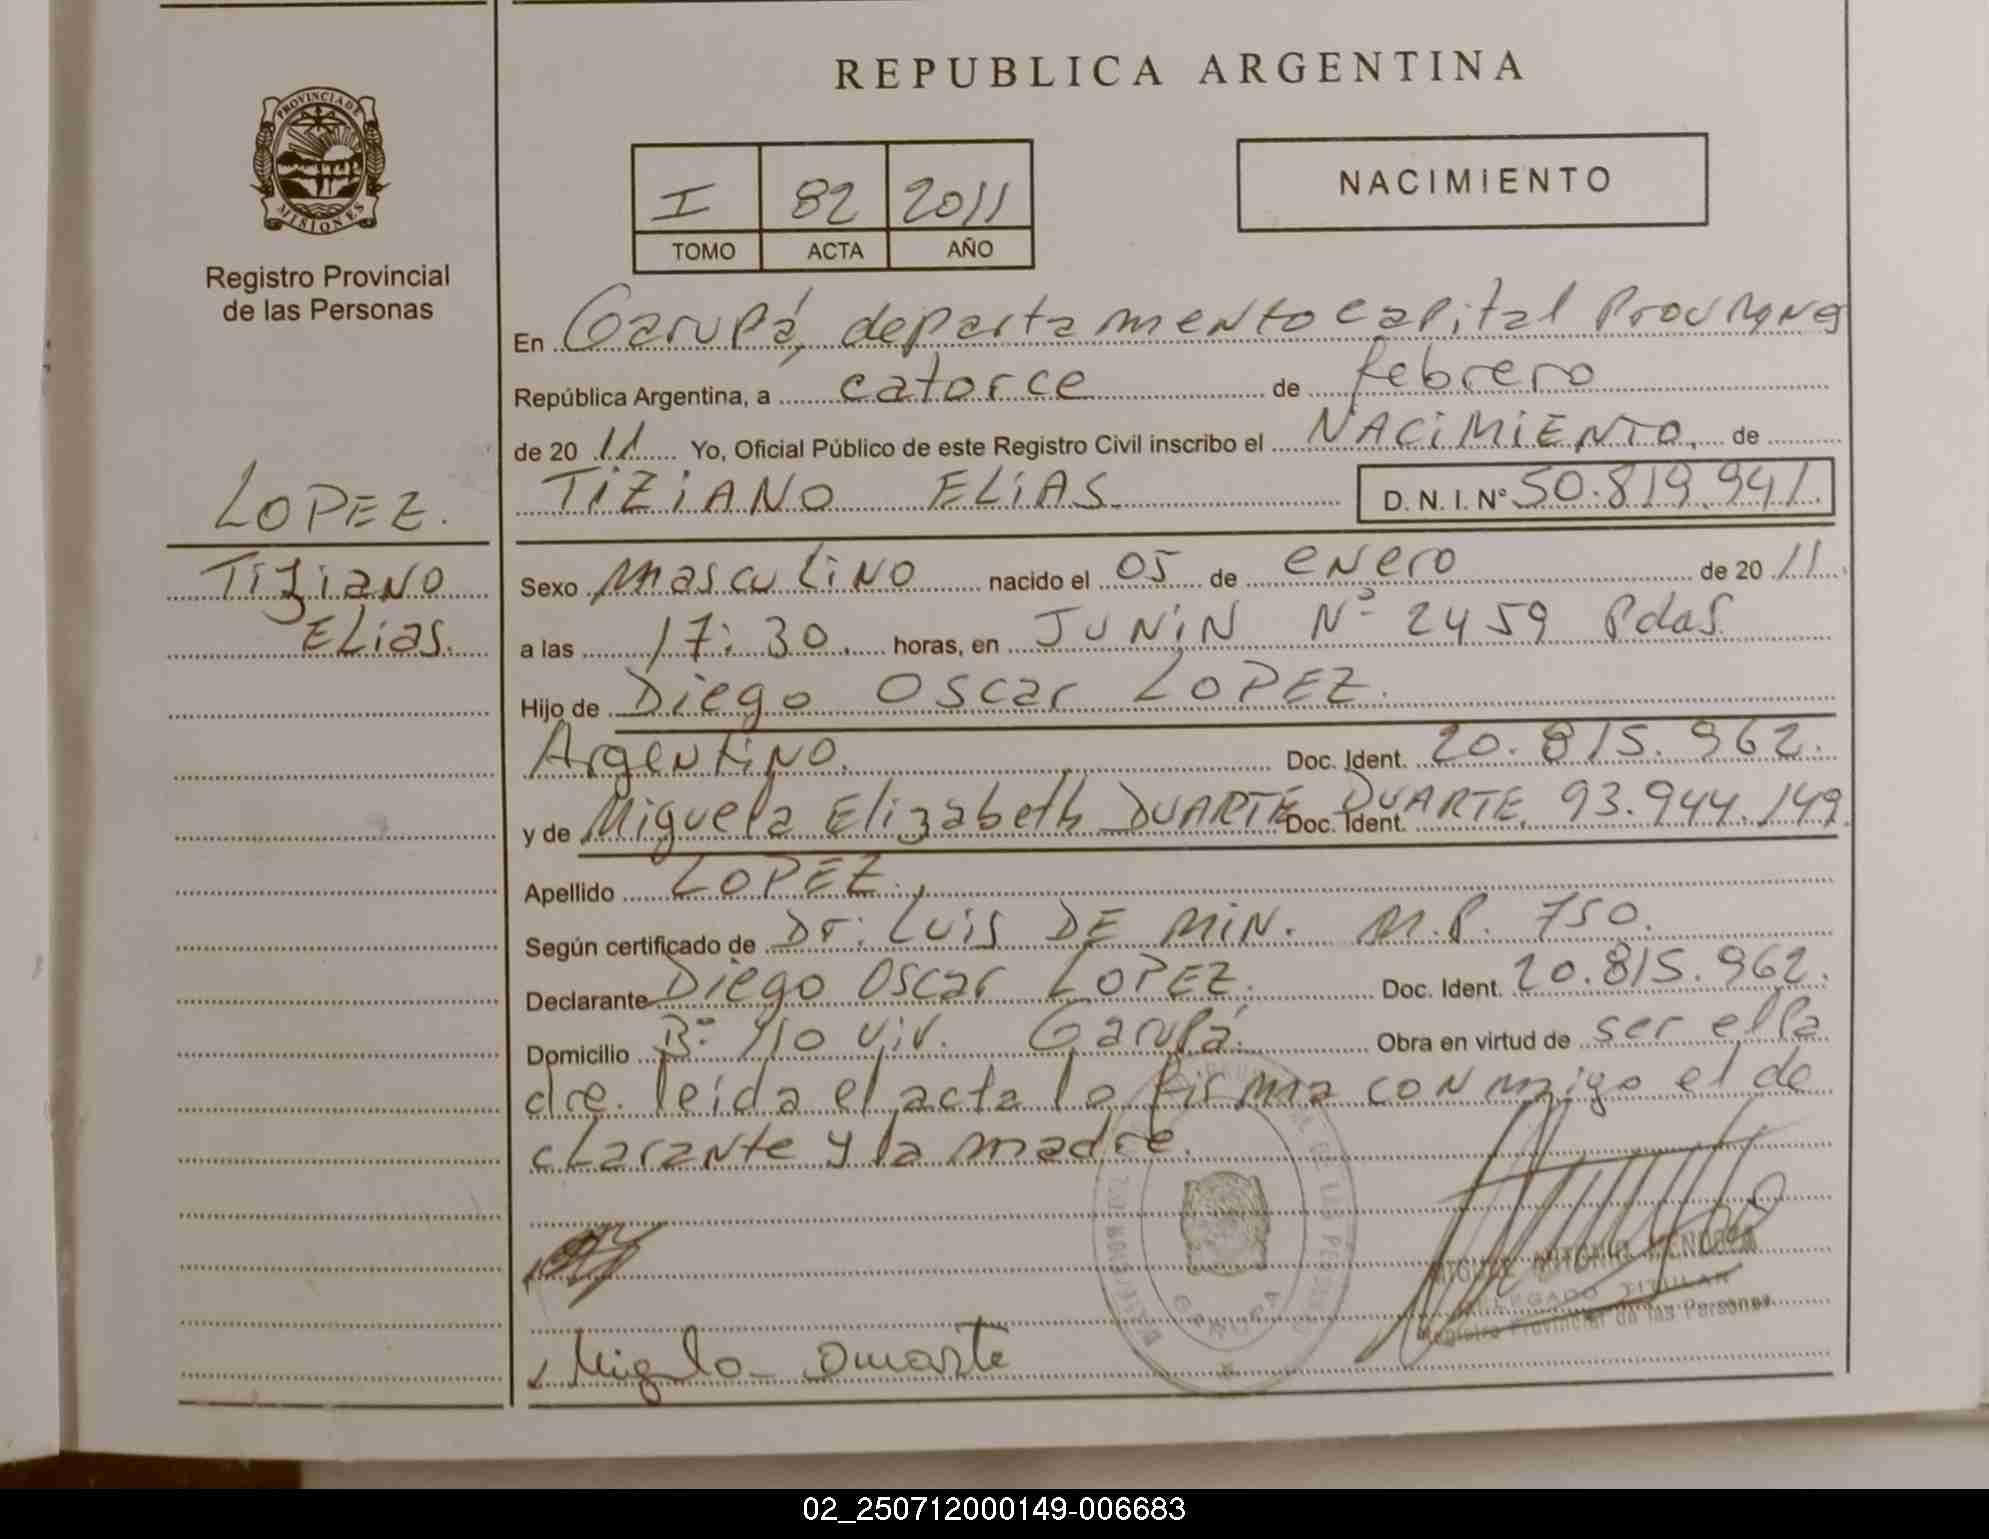 REPUBLICA ARGENTINA
PROVINCIA DE
MISIONES
Registro Provincial
de las Personas
I 82 2011
TOMO ACTA AÑO
NACIMIENTO
En Garupá, departamento capital
República Argentina, a catorce de febrero
de 20 11 Yo, Oficial Público de este Registro Civil inscribo el NACIMIENTO, de
TIZIANO ELIAS D. N. I. Nº 50.819.941.
LOPEZ.
Tiziano
ELias.
Sexo Masculino nacido el 05 de enero de 20 11
a las 17:30. horas, en JUNIN Nº 2459 Pdas.
Hijo de Diego Oscar LOPEZ.
Argentino. Doc. Ident. 20.815.962.
y de Miguela Elizabeth DUARTE DUARTE. Doc. Ident. 93.944.149.
Apellido LOPEZ.,
Según certificado de Dr: Luis DE MIN. M.P. 750.
Declarante Diego Oscar LOPEZ. Doc. Ident. 20.815.962.
Domicilio Bº 110 viv. Garupá. Obra en virtud de ser el Pa
dre. leída el acta la firma conmigo el de
clarante y la madre.
Duarte
DELEGADO TITULAR
Registro Provincial de las Personas
GARUPA
02_250712000149-006683